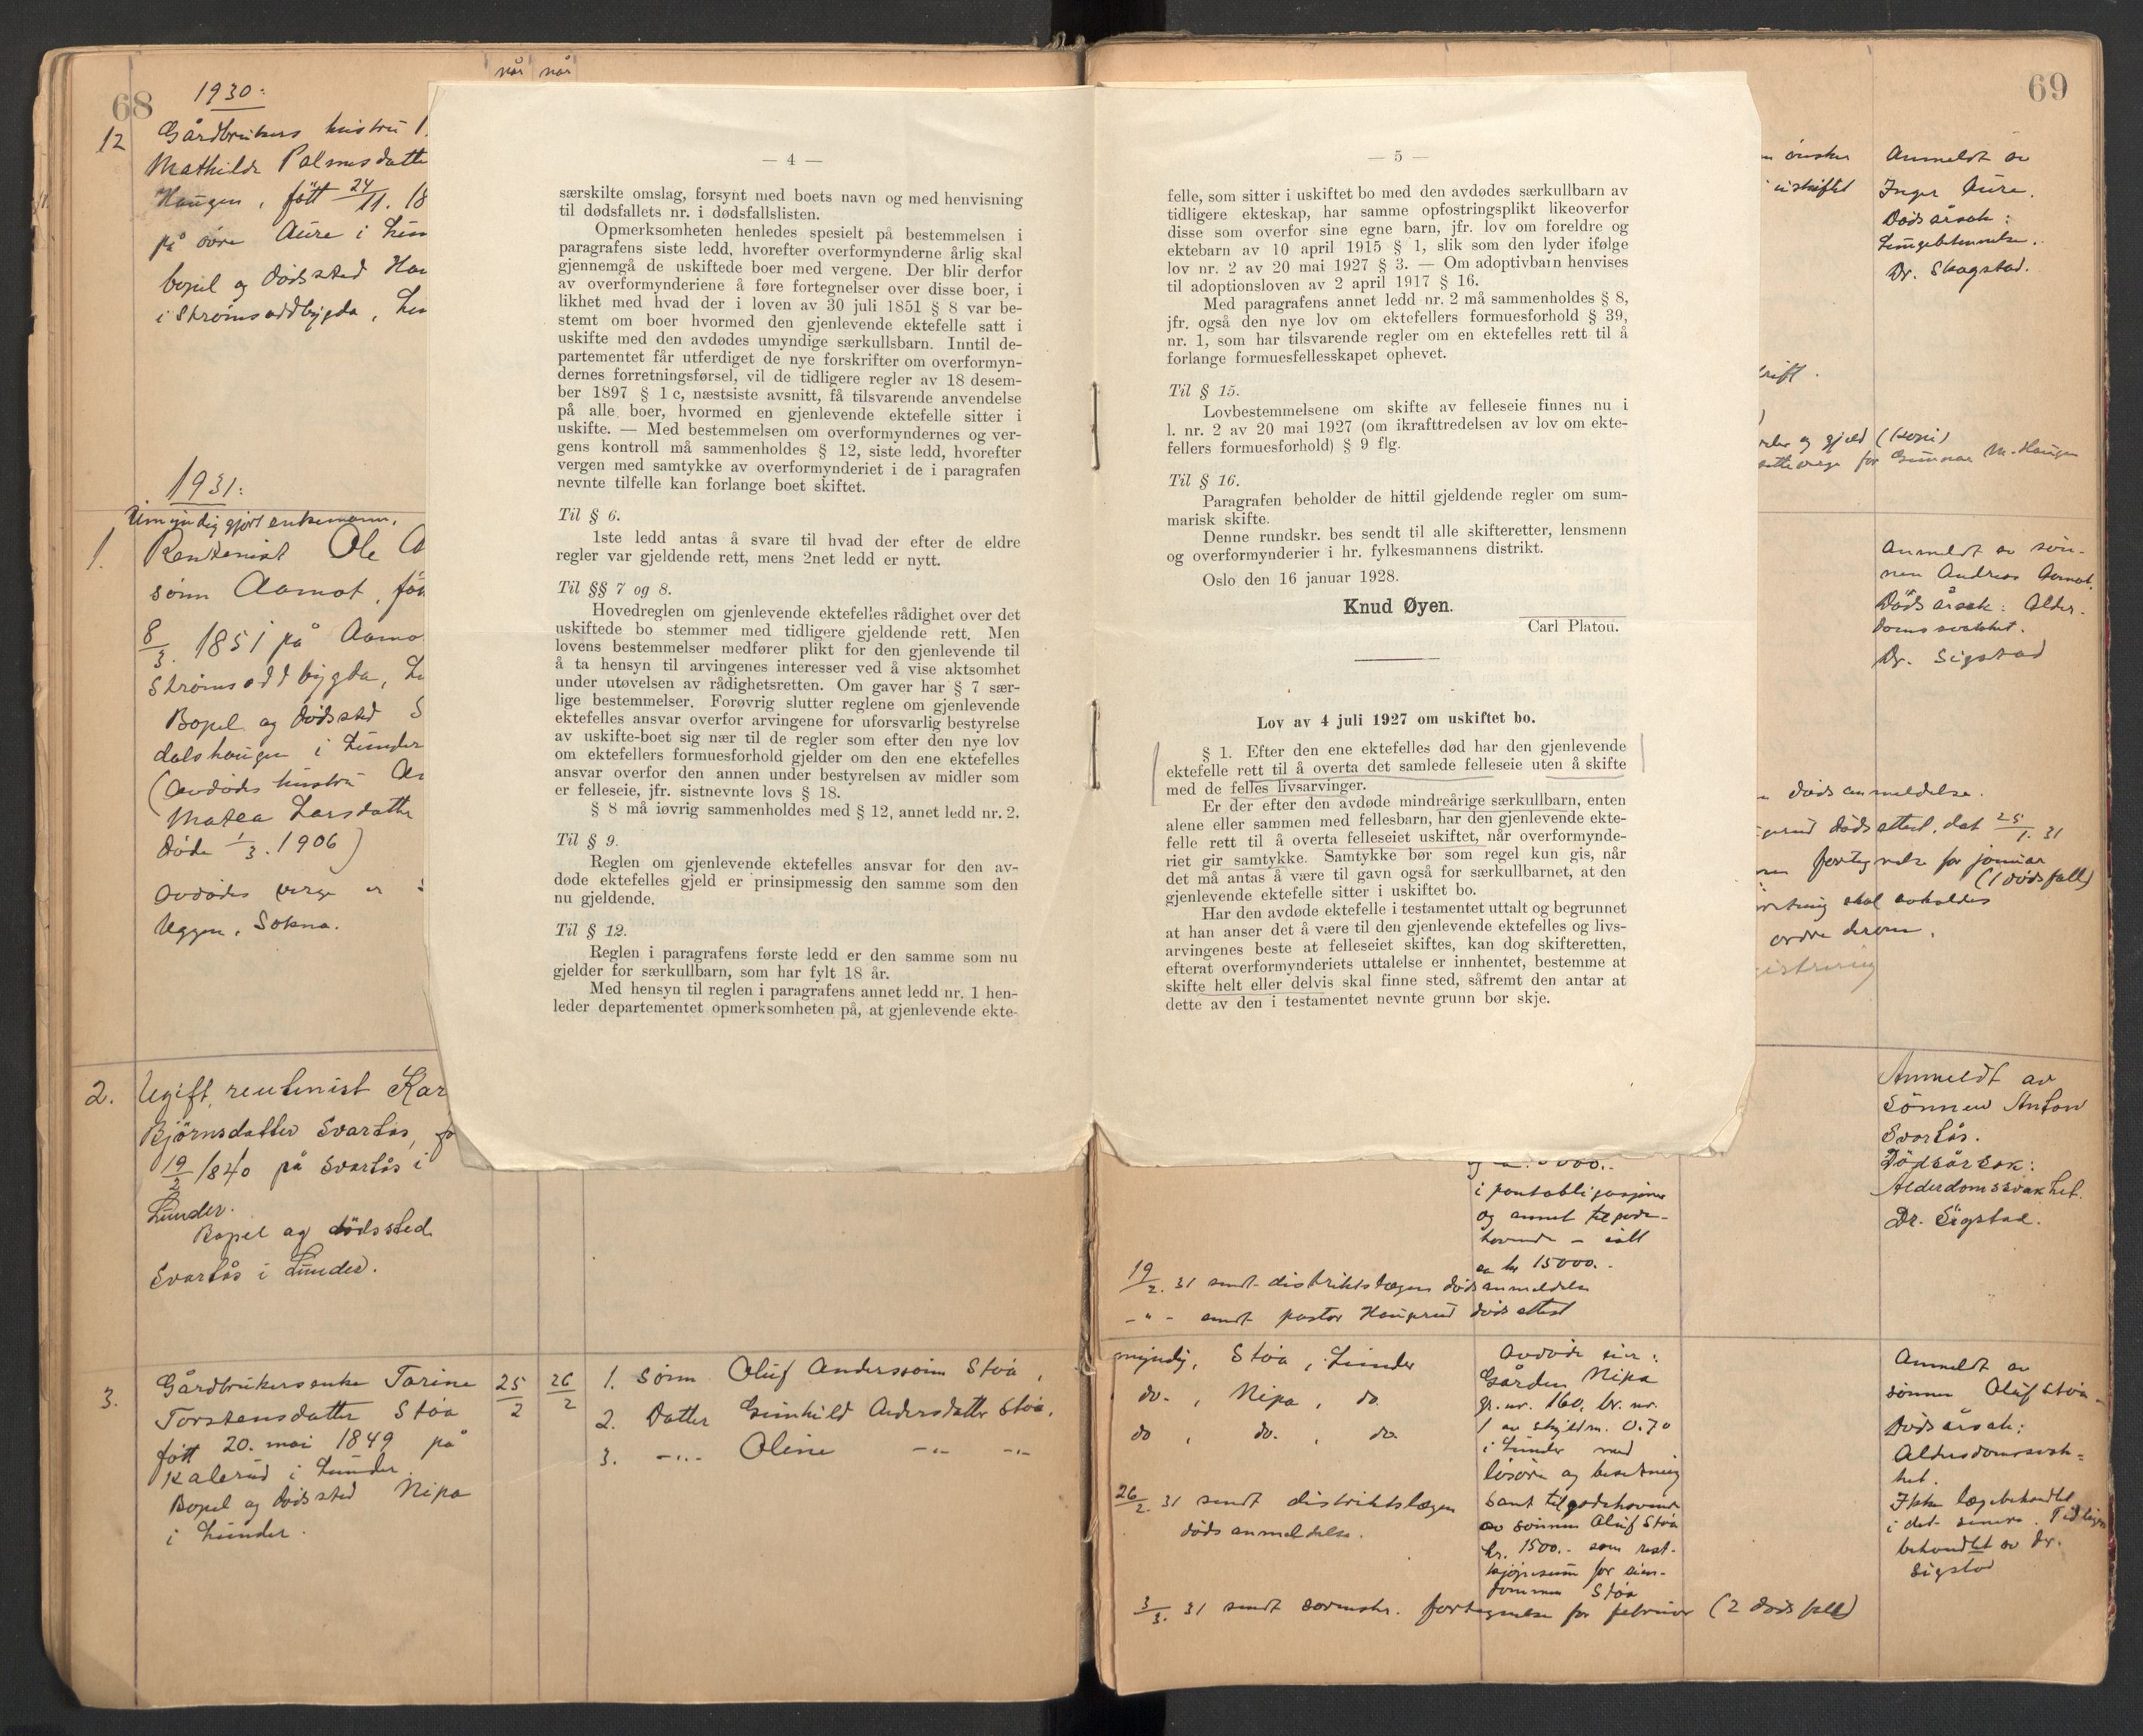 når når
68
1930:
12 Gårdbrukers hustru
Mathilde Palmesdatte
Haugen, født 24/11. 18
på øvre Aure i Lun
bopel og dødssted Hau
i Strømsoddbygda, Lun
1931:
Umyndiggjort enkemann.
1. Rentenist Ole
sønn Aamot, fød
8/3. 1851 på Aamo
Strømsoddbygda, Lu
Bopel og dødssted S
dalshaugen i Lunder
(Avdødes hustru
Matea Larsdatter
døde 1/3. 1906)
Avdødes verge er
Uggen, Sokna.
2. Ugift rentenist Kar
Bjørnsdatter Svartås, fø
19/2 1840 på Svartås i
Lunder.
Bopel og dødssted
Svartås i Lunder.
3. Gårdbrukerenke Torine
Torstensdatter Støa
født 20. mai 1849 på
Kalerud i Lunder.
Bopel og dødssted Nipa
i Lunder.
25/2 26/2
1. Sønn Oluf Anderssønn Støa,
2. Datter Gunhild Andersdatter Støa,
3. -"- Oline -"- -"-
— 4 —
særskilte omslag, forsynt med boets navn og med henvisning
til dødsfallets nr. i dødsfallslisten.
Opmerksomheten henledes spesielt på bestemmelsen i
paragrafens siste ledd, hvorefter overformynderne årlig skal
gjennemgå de uskiftede boer med vergene. Der blir derfor
av overformynderiene å føre fortegnelser over disse boer, i
likhet med hvad der i loven av 30 juli 1851 § 8 var be-
stemt om boer hvormed den gjenlevende ektefelle satt i
uskifte med den avdødes umyndige særkullsbarn. Inntil de-
partementet får utferdiget de nye forskrifter om overformyn-
dernes forretningsførsel, vil de tidligere regler av 18 desem-
ber 1897 § 1 c, næstsiste avsnitt, få tilsvarende anvendelse
på alle boer, hvormed en gjenlevende ektefelle sitter i
uskifte. — Med bestemmelsen om overformyndernes og ver-
gens kontroll må sammenholdes § 12, siste ledd, hvorefter
vergen med samtykke av overformynderiet i de i paragrafen
nevnte tilfelle kan forlange boet skiftet.
Til § 6.
1ste ledd antas å svare til hvad der efter de eldre
regler var gjeldende rett, mens 2net ledd er nytt.
Til §§ 7 og 8.
Hovedreglen om gjenlevende ektefelles rådighet over det
uskiftede bo stemmer med tidligere gjeldende rett. Men
lovens bestemmelser medfører plikt for den gjenlevende til
å ta hensyn til arvingenes interesser ved å vise aktsomhet
under utøvelsen av rådighetsretten. Om gaver har § 7 sær-
lige bestemmelser. Forøvrig slutter reglene om gjenlevende
ektefelles ansvar overfor arvingene for uforsvarlig bestyrelse
av uskifte-boet sig nær til de regler som efter den nye lov
om ektefellers formuesforhold gjelder om den ene ektefelles
ansvar overfor den annen under bestyrelsen av midler som
er felleseie, jfr. sistnevnte lovs § 18.
§ 8 må iøvrig sammenholdes med § 12, annet ledd nr. 2.
Til § 9.
Reglen om gjenlevende ektefelles ansvar for den av-
døde ektefelles gjeld er prinsipmessig den samme som den
nu gjeldende.
Til § 12.
Reglen i paragrafens første ledd er den samme som nu
gjelder for særkullbarn, som har fylt 18 år.
Med hensyn til reglen i paragrafens annet ledd nr. 1 hen-
leder departementet opmerksomheten på, at gjenlevende ekte-
— 5 —
felle, som sitter i uskiftet bo med den avdødes særkullbarn av
tidligere ekteskap, har samme opfostringsplikt likeoverfor
disse som overfor sine egne barn, jfr. lov om foreldre og
ektebarn av 10 april 1915 § 1, slik som den lyder ifølge
lov nr. 2 av 20 mai 1927 § 3. — Om adoptivbarn henvises
til adoptionsloven av 2 april 1917 § 16.
Med paragrafens annet ledd nr. 2 må sammenholdes § 8,
jfr. også den nye lov om ektefellers formuesforhold § 39,
nr. 1, som har tilsvarende regler om en ektefelles rett til å
forlange formuesfellesskapet ophevet.
Til § 15.
Lovbestemmelsene om skifte av felleseie finnes nu i
l. nr. 2 av 20 mai 1927 (om ikrafttredelsen av lov om ekte-
fellers formuesforhold) § 9 flg.
Til § 16.
Paragrafen beholder de hittil gjeldende regler om sum-
marisk skifte.
Denne rundskr. bes sendt til alle skifteretter, lensmenn
og overformynderier i hr. fylkesmannens distrikt.
Oslo den 16 januar 1928.
Knud Øyen.
Carl Platou.
Lov av 4 juli 1927 om uskiftet bo.
§ 1. Efter den ene ektefelles død har den gjenlevende
ektefelle rett til å overta det samlede felleseie uten å skifte
med de felles livsarvinger.
Er der efter den avdøde mindreårige særkullbarn, enten
alene eller sammen med fellesbarn, har den gjenlevende ekte-
felle rett til å overta felleseiet uskiftet, når overformynde-
riet gir samtykke. Samtykke bør som regel kun gis, når
det må antas å være til gavn også for særkullbarnet, at den
gjenlevende ektefelle sitter i uskiftet bo.
Har den avdøde ektefelle i testamentet uttalt og begrunnet
at han anser det å være til den gjenlevende ektefelles og livs-
arvingenes beste at felleseiet skiftes, kan dog skifteretten,
efterat overformynderiets uttalelse er innhentet, bestemme at
skifte helt eller delvis skal finne sted, såfremt den antar at
dette av den i testamentet nevnte grunn bør skje.
69
ønsker
uskiftet
Anmeldt av
Inger Aure.
Dødsårsak:
Lungebetennelse.
Dr. Skagstad.
rift.
og gjeld (kopi)
for Gunnar M. Haugen
Anmeldt av søn-
nen Andreas Aamot.
Dødsårsak: Alder-
domssvakhet.
Dr. Sigstad
dødsanmeldelse.
dødsattest, dat 25/1. 31
fortegnelse for januar
(1 dødsfall)
skal avholdes
ordre derom.
istrering
Anmeldt av
Sønnen Anton
Svartås.
Dødsårsak:
Alderdomssvakhet.
Dr. Sigstad.
i pantobligasjoner
og annet tilgode-
havende – ialt
ca kr 15000.-
19/2. 31 sendt distriktslægen dødsanmeldelse
-"- sendt pastor Haugerud dødsattest
myndig, Støa, Lunder
do., Nipa, do.
do, do., do.
Avdøde eier:
Gården Nipa
gr.nr. 160, br. nr.
1 av skyldm. 0.70
i Lunder med
løsøre og besetning
samt tilgodehavende
av sønnen Oluf Støa
kr. 1500.- som rest-
kjøpesum for eien-
dommen Støa
26/2. 31 sendt distriktslægen
dødsanmeldelse.
3/3. 31 sendt sorenskr. fortegnelse for februar (2 dødsfall)
Anmeldt av
sønnen Oluf Støa
Dødsårsak:
Alderdomssvak-
het.
Ikke lægebehandlet
i det senere. Tidligere
behandlet av Dr.
Sigstad